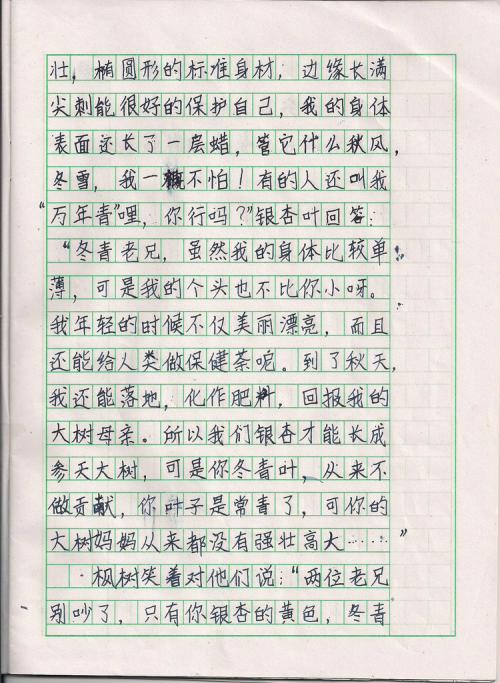 壮，椭圆形的标准身材；边缘长满
尖刺能很好的保护自己，我的身体
表面还长了一层蜡，管它什么秋风，
冬雪，我一概不怕！有的人还叫我
“万年青”哩，你行吗？”银杏叶回答：
“冬青老兄，虽然我的身体比较单
薄，可是我的个头也不比你小呀。
我年轻的时候不仅美丽漂亮，而且
还能给人类做保健茶呢。到了秋天，
我还能落地，化作肥料，回报我的
大树母亲。所以我们银杏才能长成
参天大树，可是你冬青叶，从来不
做贡献，你叶子是常青了，可你的
大树妈妈从来都没有强壮高大……”
枫树笑着对他们说：“两位老兄
别吵了，只有你银杏的黄色，冬青